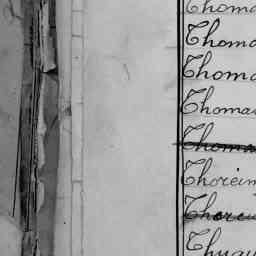 Thoma
Thoma
Thoma
Thomas
Thoma
Thoreim
Thorei
Thugu